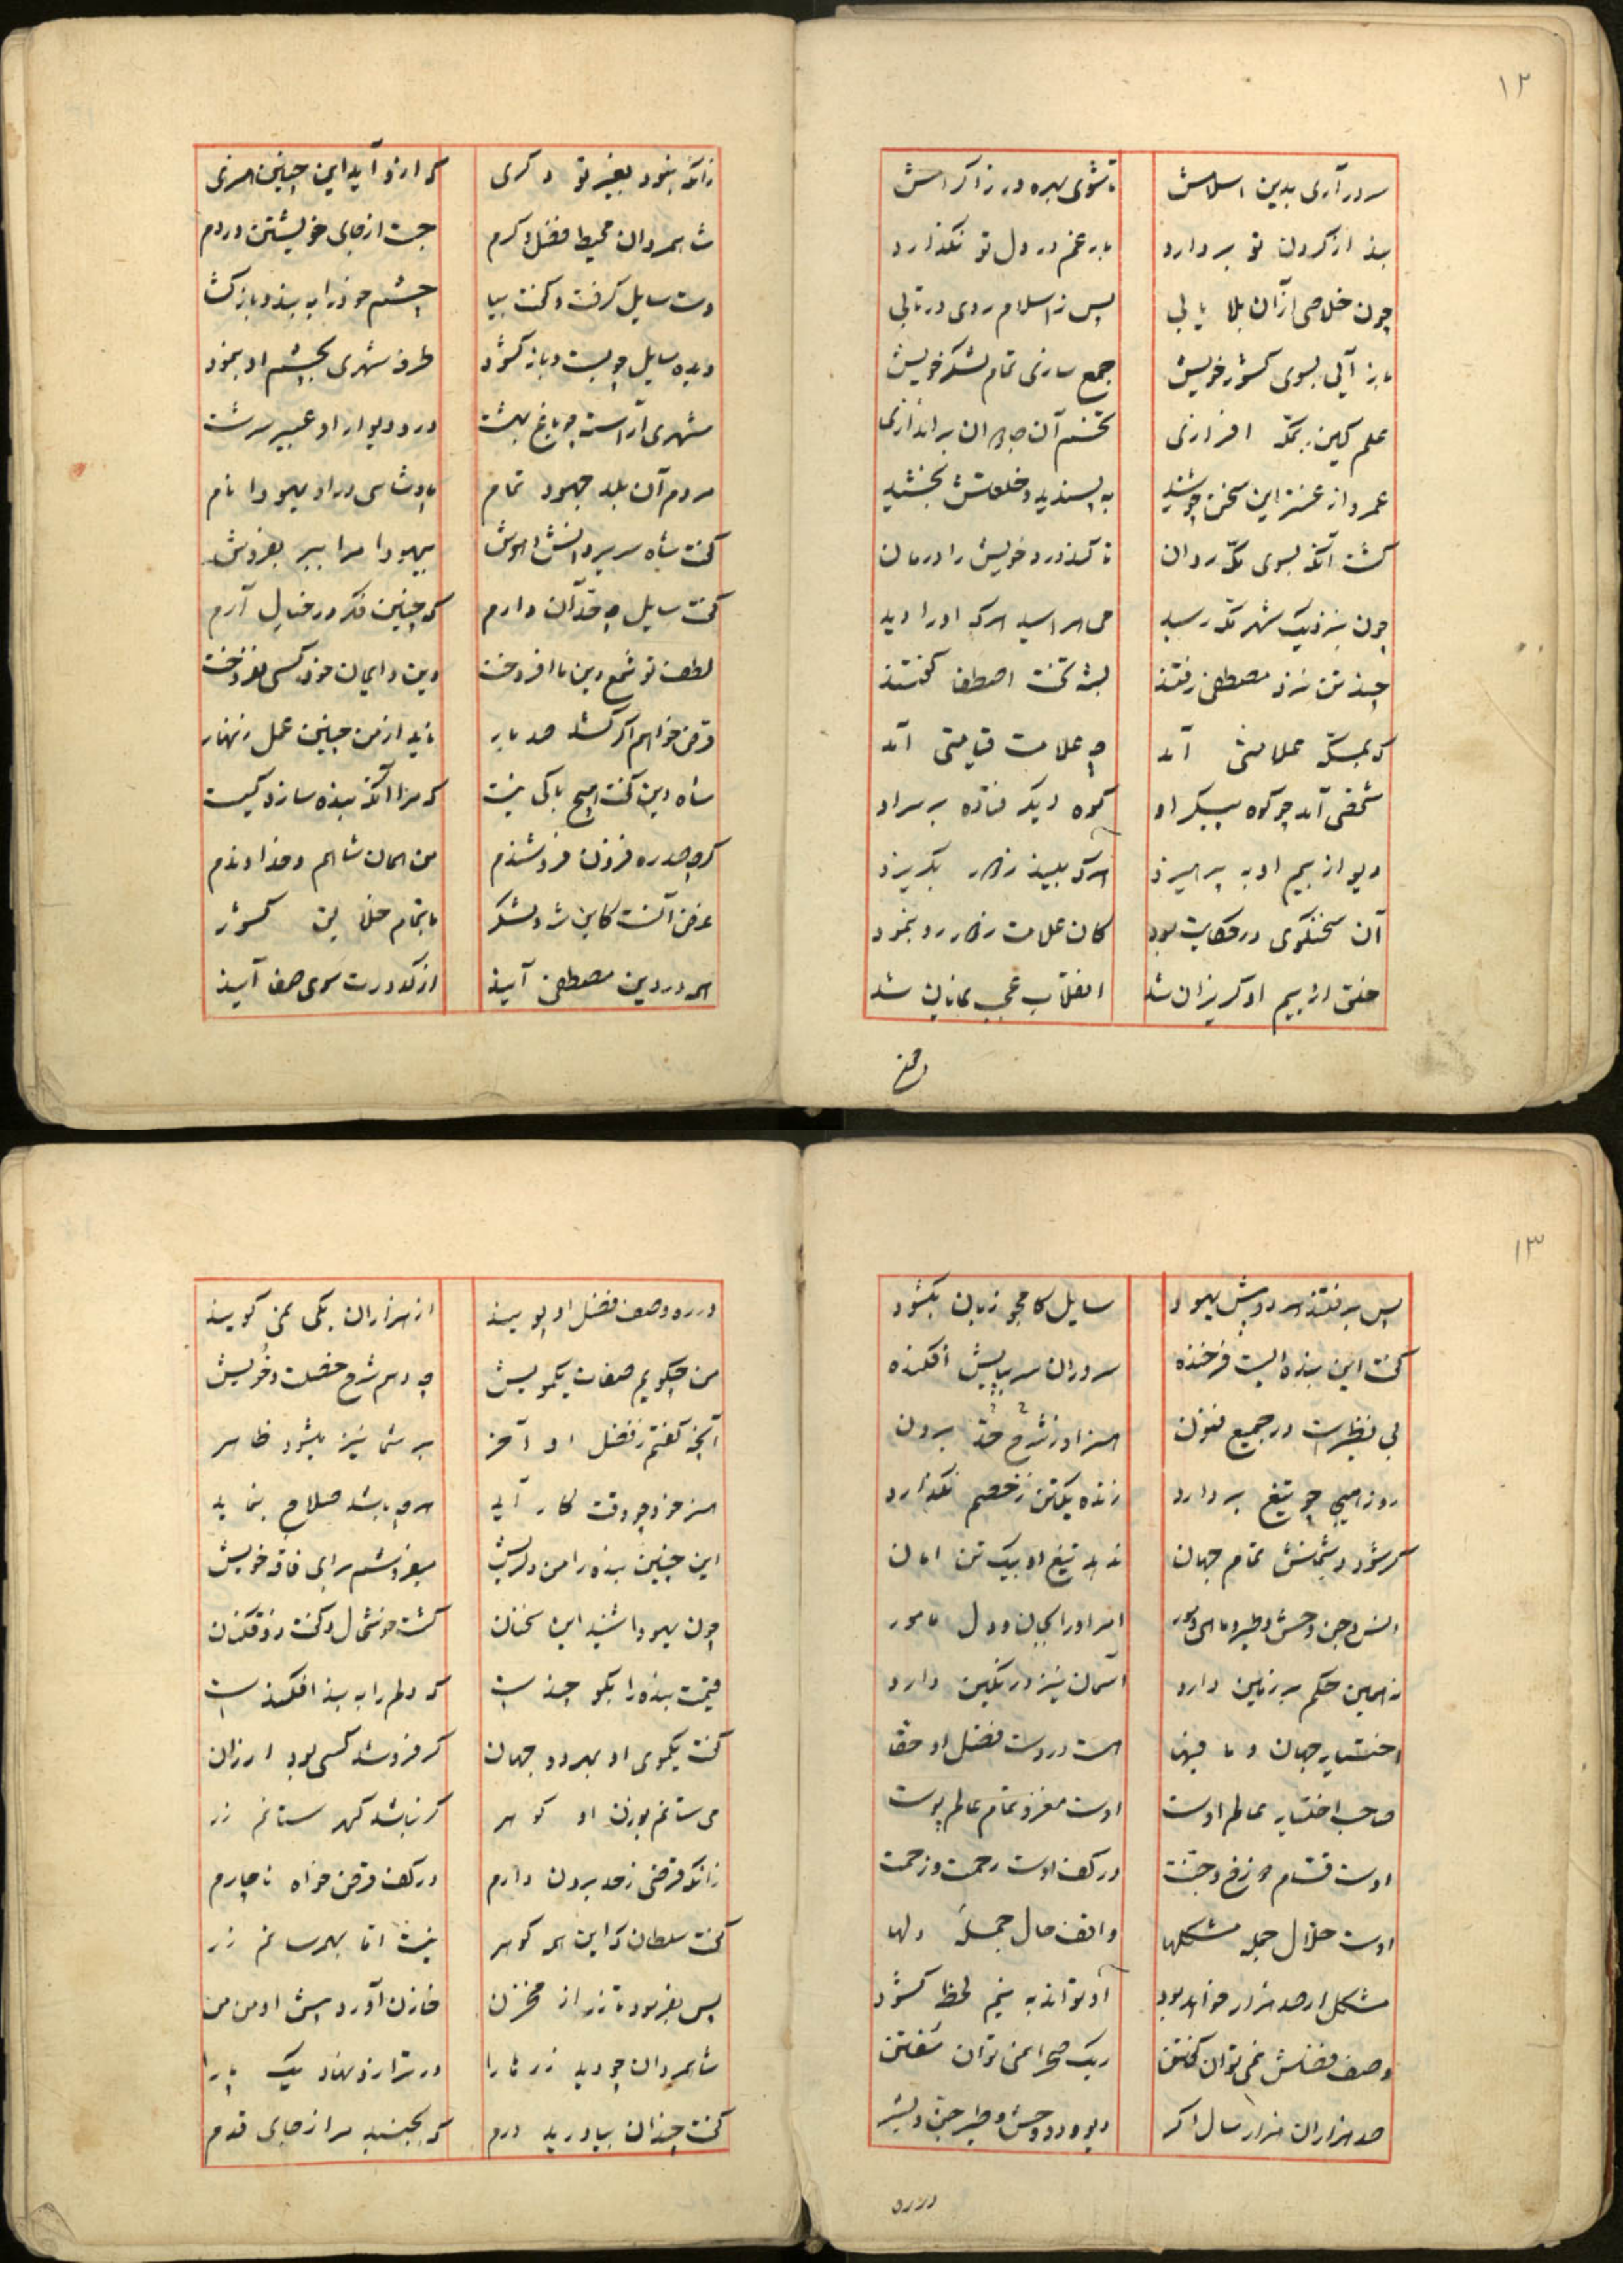 ۱۲
سر در آری بدین اسلامش تا شوی بهره ور ز اکرامش
بند از کردن تو بردارد بار غم در دل تو نکذارد
چون خلاصی از آن بلا یابی پس ز اسلام روی درتابی
باز آئی بسوی کشور خویش جمع سازی تمام لشکر خویش
علم کین بمکه افرازی تخم آن جاهلان براندازی
عمرو از عنتر این سخن چو شنید به پسندید و خلعتش بخشید
کشت آنکه بسوی مکه روان تا کند درد خویش را درمان
چون بنزدیک شهر مکه رسید می هراسید هرکه او را دید
چند تن نزد مصطفی رفتند
که بمکه علامتی آمد چه علامت قیامتی آمد
شخصی آمد چو کوه پیکر او کوه دیکر فتاده بر سر او
دیو از بیم او به پرهیزد هرکه بیند ز دور بکریزد
آن سخنکوی در حکایت بود کان علامت ز دور رو بنمود
خلق از بیم او کریزان شد انقلاب عجب نمایان شد
زانکه نبود بغیر تو دکری که ازو آید این چنین هنری
شاه مردان محیط فضل و کرم جست از جای خویشتن در دم
دست سایل کرفت و کفت بیا چشم خود را به بند و باز کشا
دیده سایل چو بست و باز کشود طرفه شهری بچشم او بنمود
شهری آراسته چو باغ بهشت در و دیوار او عبیر سرشت
مردم آن بلد جهود تمام پادشاهی در او یهودا نام
کفت شاه سریر دانش و هوش بیهودا مرا ببر بفروش
کفت سایل چه حد آن دارم که چنین فکر در خیال آرم
لطف تو شمع دین ما افروخت دین و ایمان خود کسی نفروخت
قرض خواهم اکر کشد صد بار ناید از من چنین عمل زنهار
شاه دین کفت هیچ باکی نیست که مرا آنکه بنده سازد کیست
کر چه صد ره فزون فروشندم من همان شاهم و خداوندم
غرض آنست کاین شه و لشکر با تمام خلایق کشور
همه در دین مصطفی آیند از کدورت سوی صفا آیند
۱۳
پس برفتند هر دو پیش یهود سایل کامجو زبان بکشود
کفت این بنده ایست فرخنده سروران سر بپایش افکنده
بی نظیرست در جمیع فنون هنر او ز شرح حد بیرون
روز هیجا چو تیغ بردارد زنده یکتن ز خصم نکذارد
کر شود دشمنش تمام جهان ندهد تیغ او بیک تن امان
انس و جن وحش و طیر و ماهی و مور امر او را بجان و دل مامور
نه همین حکم بر زمین دارد آسمان نیز در نکین دارد
اختیار جهان و ما فیها هست در دست فضل او حقا
صاحب اختیار عالم اوست اوست مغز و تمام عالم پوست
اوست قسام دوزخ و جنت در کف اوست رحمت و زحمت
اوست حلال جمله مشکلها واقف حال جمله دلها
مشکل ار صد هزار خواهد بود او تواند به نیم لحظه کشود
وصف فضلش نمی توان کفتن ریک صحرا نمی توان سفتن
صد هزاران هزار سال اکر دیو و دد وحش و طیر جن و بشر
در ره
در ره وصف فضل او پویند از هزاران یکی نمی کویند
من چکویم صفات یکمویش چه دهم شرح خصلت و خویش
آنچه کفتم ز فضل او آخر بر شما نیز میشود ظاهر
هنر خود چو وقت کار آید هر چه باشد صلاح بنماید
این چنین بنده را من دلریش میفروشم برای فاقه خویش
چون یهودا شنید این سخنان کشت خوشحال و کفت
قیمت بنده را بکو چندست که دلم را به بند افکندست
کفت یکموی او بهر دو جهان کر فروشد کسی بود ارزان
می ستانم بوزن او کوهر کر نباشد کهر ستانم زر
زانکه قرضی ز حد برون دارم در کف قرض خواه ناچارم
کفت سلطان که این همه کوهر نیست اما بهم رسانم زر
پس بفرمود تا زر از مخزن خازن آورد پیش او من من
شاه مردان چو دید زرها را در ترازو نهاد یک پا را
کفت چندان بیاورید درم که بجنبد مرا ز جای قدم